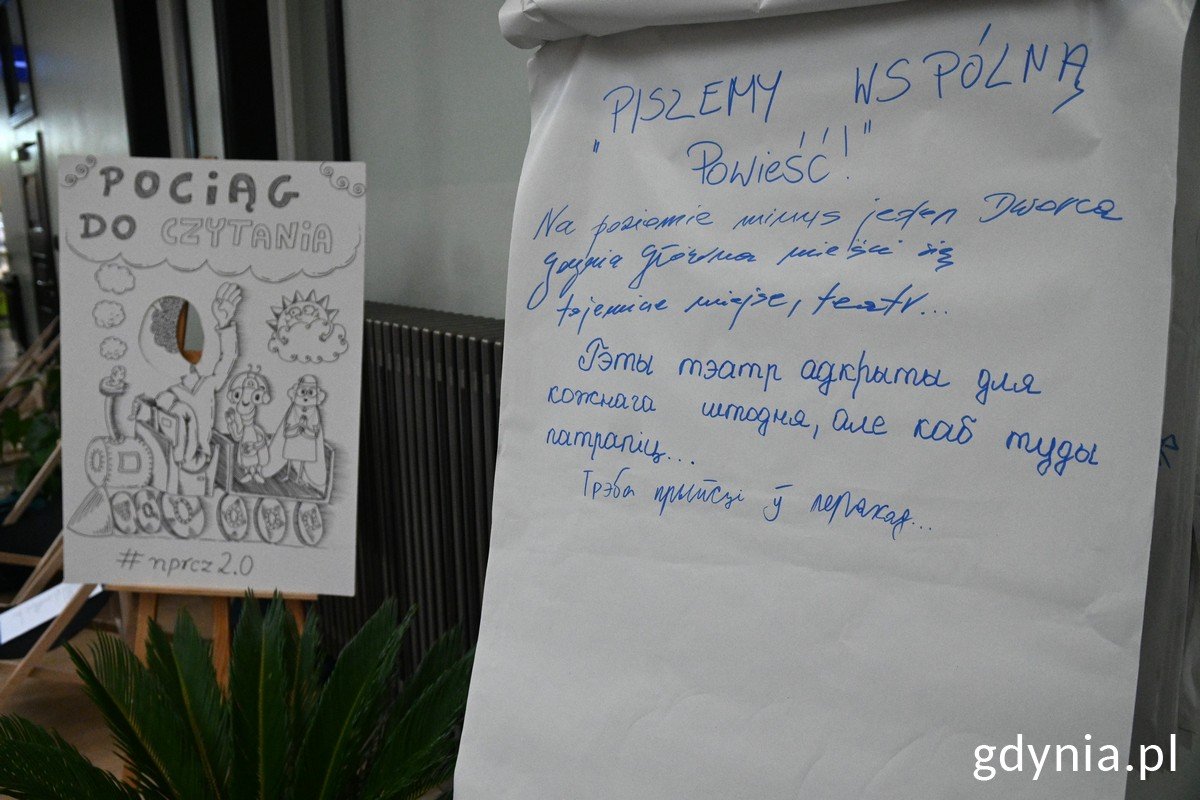 POCIĄG
DO CZYTANIA
#nprcz2.0
"PISZEMY WSPÓLNĄ
POWIEŚĆ!"
Na poziomie minus jeden Dworca
Gdynia Główna mieści się
tajemnicze miejsce, teatr...
Гэты тэатр адкрыты для
кожнага штодня, але каб туды
патрапіц...
Трэба прыйсці ў пераход...
gdynia.pl